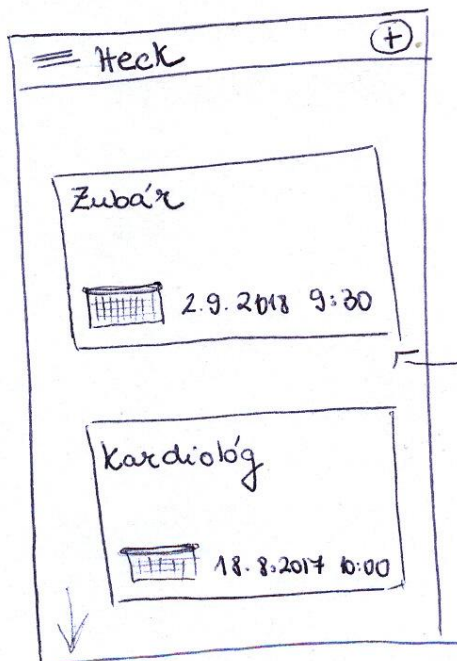 Heck
Zubár
2.9.2018 9:30
Kardiológ
18.8.2017 10:00